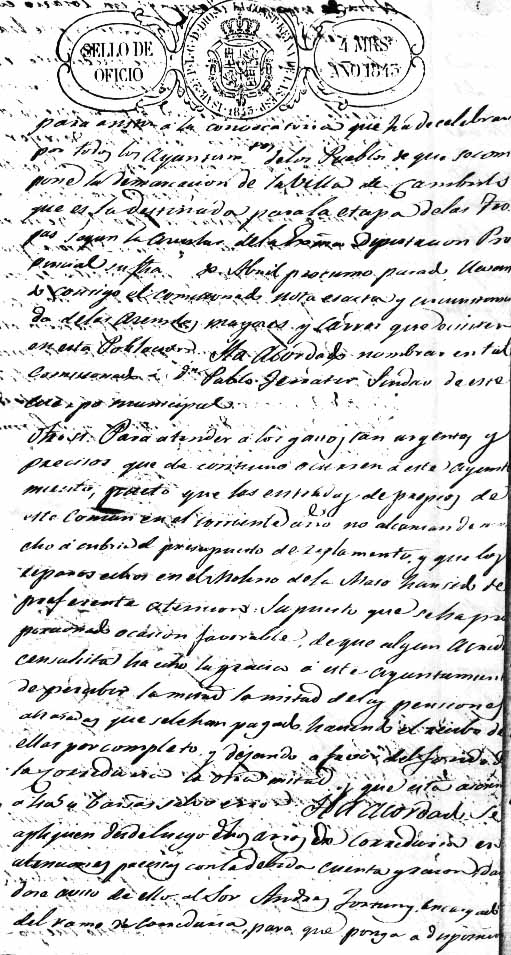 SELLO DE OFICIO
4 MRS. AÑO 1843
para asistir a la convocatoria que ha de celebrar
por todos los Ayuntam.tos de los Pueblos de que se com
pone la demarcacion de la Villa de Cambrils
que es la destinada para la etapa de las Tro
pas segun la circular de la Exma Diputacion Pro
vincial su fha de Abril proximo pasad. 
consigo el comisionado nota esacta y
da de las mayores y Carros que ecsisten
en esta Poblacion Ha Acordado nombrar en tal
Comisionado a Dn Pablo Ferrater Sindico de este
cuerpo municipal
Otrosi: Para atender a los gastos tan urgentes y
precisos que de continuo ocurren a este Ayunta
miento, que las entradas de propios de
este Comun en el corriente año no alcanzan de mu
cho a cubrir el presupuesto de reglamento, y que los
reparos echos en el Molino de la han sido de
preferente atencion: Supuesto que se ha pro
porcionado ocasion favorable, de que algun Acreed
censalista ha echo la gracia a este Ayuntamiento
de percibir la mitad la mitad de las pensiones
atrasadas que se le han pagado, haciendo el recibo de
ellas por completo y dejando a favor del
la Correduria la otra mitad y que esta
salvo error Ha Acordado Se
apliquen desde luego dhos de Correduria en
atenciones precisas con la debida cuenta y razon, dan
dose aviso de ello al Sor Andres Fortuny encargado
del ramo de Correduria, para que ponga a disposicion